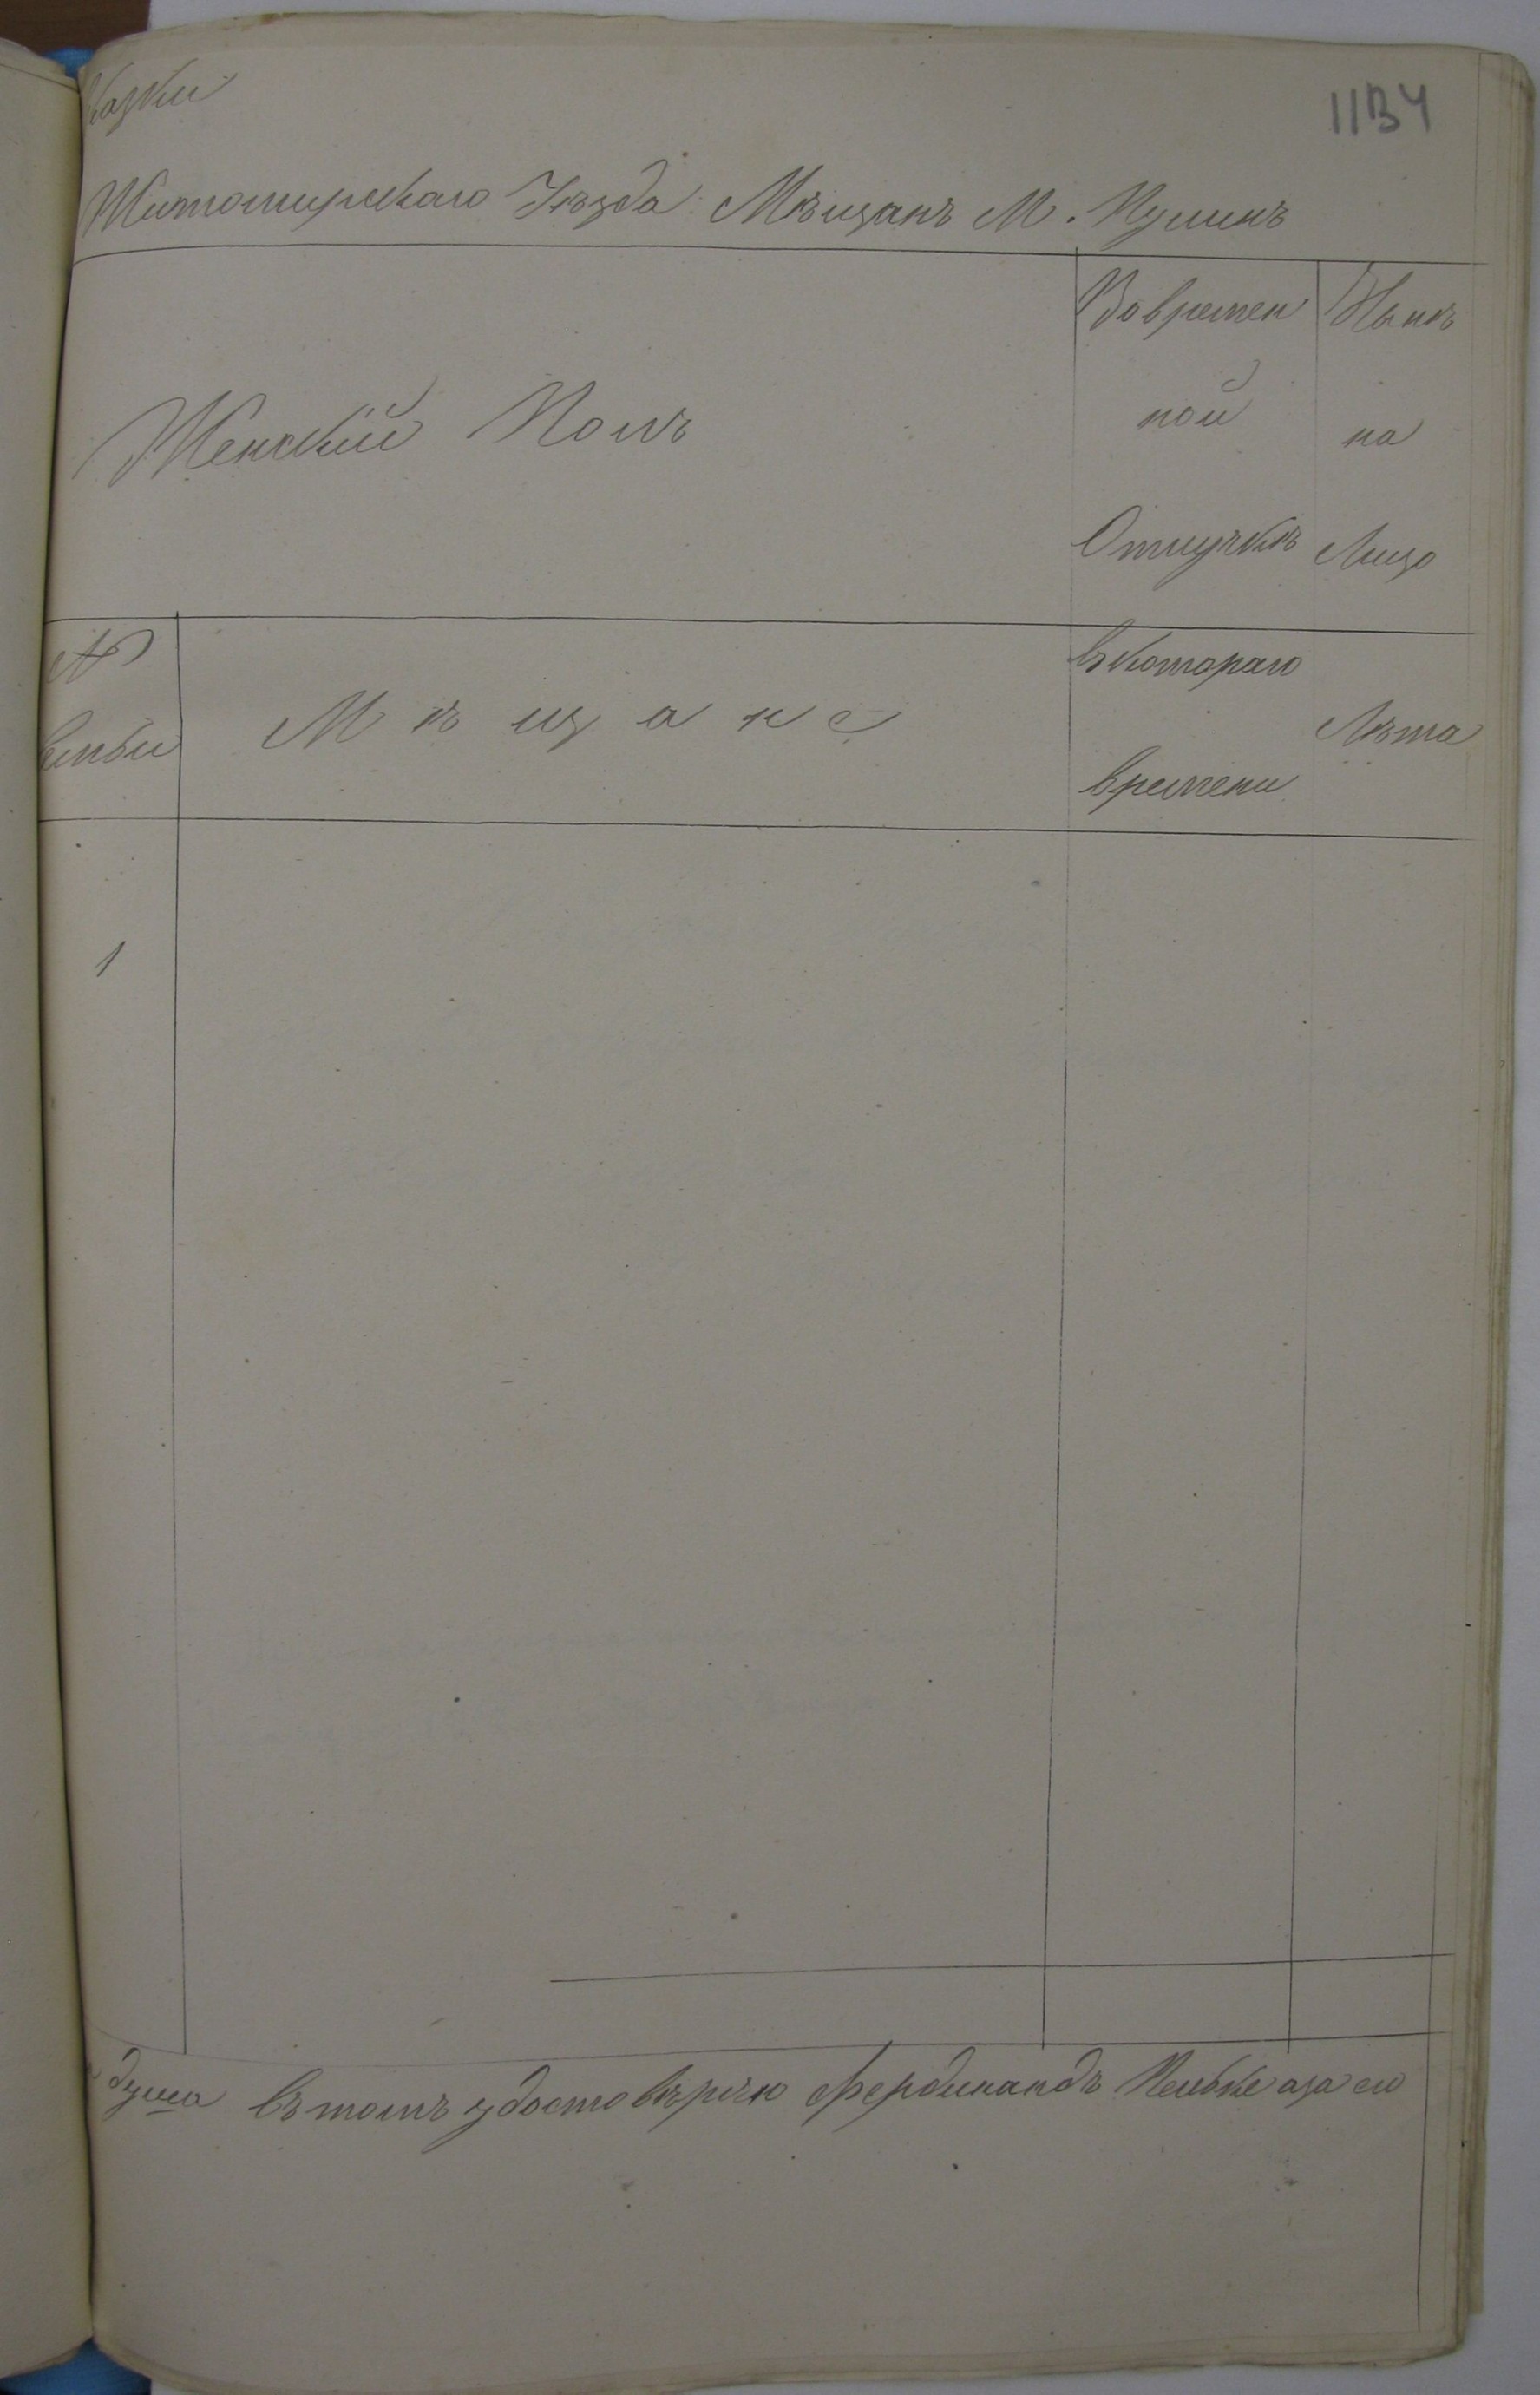 1134
сказки
Житомирскаго Уѣзда Мѣщанъ М. Пулинъ
Женскій Полъ
Вовремен
ной
Отлучкѣ
Нынѣ
на
Лицо
№
семьи
Мѣщане
Съкотораго
времени
Лѣта
1
душа Въ томъ удостовѣряю Фердинандъ